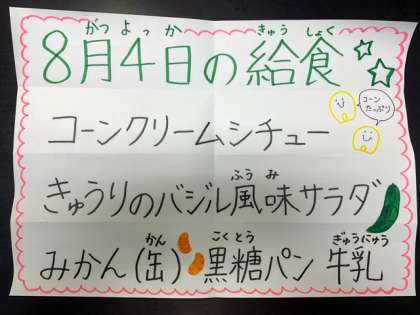 がつ よっ か きゅう しょく
8月4日の給食
コーン
たっぷり
コーンクリームシチュー
ふう み
きゅうりのバジル風味サラダ
かん こくとう ぎゅうにゅう
みかん(缶) 黒糖パン 牛乳